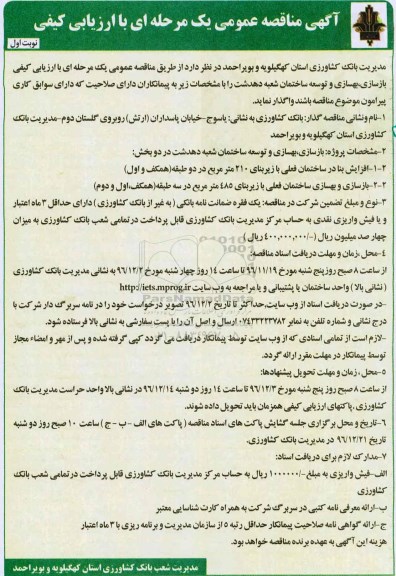 آگهی مناقصه عمومی یک مرحله ای با ارزیابی کیفی
نوبت اول
مدیریت بانک کشاورزی استان کهگیلویه و بویراحمد در نظر دارد از طریق مناقصه عمومی یک مرحله ای با ارزیابی کیفی
بازسازی،بهسازی و توسعه ساختمان شعبه دهدشت را با مشخصات زیر به پیمانکاران دارای صلاحیت که دارای سوابق کاری
پیرامون موضوع مناقصه باشند واگذار نماید.
۱-نام ونشانی مناقصه گذار: بانک کشاورزی به نشانی: یاسوج-خیابان پاسداران (ارتش) روبروی گلستان دوم-مدیریت بانک
کشاورزی استان کهگیلویه و بویراحمد
۲-مشخصات پروژه: بازسازی،بهسازی و توسعه ساختمان شعبه دهدشت در دو بخش:
۱-۲-افزایش بنا در ساختمان فعلی با زیربنای ۲۱۰ متر مربع در دو طبقه(همکف و اول)
۲-۲-بازسازی و بهسازی ساختمان فعلی با زیربنای ۴۸۵ متر مربع در سه طبقه(همکف،اول و دوم)
۳-نوع و مبلغ تضمین شرکت در مناقصه: یک فقره ضمانت نامه بانکی (به غیر از بانک کشاورزی) دارای حداقل ۳ ماه اعتبار
و یا فیش واریزی نقدی به حساب مرکز مدیریت بانک کشاورزی قابل پرداخت در تمامی شعب بانک کشاورزی به میزان
چهار صد میلیون ریال (-/۴۰۰,۰۰۰,۰۰۰ ریال)
۴-محل ،زمان و مهلت دریافت اسناد مناقصه:
از ساعت ۸ صبح روز پنج شنبه مورخ ۹۶/۱۱/۱۹ تا ساعت ۱۴ روز چهار شنبه مورخ ۹۶/۱۲/۲ به نشانی مدیریت بانک کشاورزی
(نشانی بالا) واحد ساختمان یا پشتیبانی و یا مراجعه به وب سایت http://iets.mprog.ir
-در صورت دریافت اسناد از وب سایت،حداکثر تا تاریخ ۹۶/۱۲/۲ تصویر درخواست خود را در نامه سربرگ دار شرکت با
درج نشانی و شماره تلفن به نمابر ۰۷۴۳۳۲۲۳۷۸۲ ارسال و اصل آن را با پست سفارشی به نشانی بالا فرستاده شود.
-لازم است از تمامی اسنادی که از وب سایت توسط پیمانکار دریافت می گردد کپی گرفته شده و پس از مهر و امضاء مجاز
توسط پیمانکار در مهلت مقرر ارائه گردد.
۵-محل ، زمان و مهلت تحویل پیشنهادها:
از ساعت ۸ صبح روز پنج شنبه مورخ ۹۶/۱۲/۳ تا ساعت ۱۴ روز دو شنبه ۹۶/۱۲/۱۴ در نشانی بالا واحد حراست مدیریت بانک
کشاورزی ،پاکتهای ارزیابی کیفی همزمان باید تحویل داده شوند.
۶-تاریخ و محل برگزاری جلسه گشایش پاکت های اسناد مناقصه (پاکت های الف - ب - ج) ساعت ۱۰ صبح روز دو شنبه
تاریخ ۹۶/۱۲/۲۱ در مدیریت بانک کشاورزی.
۷-مدارک لازم برای دریافت اسناد:
الف-فیش واریزی به مبلغ-/۱۰۰۰۰۰۰ ریال به حساب مرکز مدیریت بانک کشاورزی قابل پرداخت در تمامی شعب بانک
کشاورزی
ب-ارائه معرفی نامه کتبی در سربرگ شرکت به همراه کارت شناسایی معتبر
ج-ارائه گواهی نامه صلاحیت پیمانکار حداقل رتبه ۵ از سازمان مدیریت و برنامه ریزی با ۳ ماه اعتبار
هزینه این آگهی به عهده برنده مناقصه خواهد بود.
مدیریت شعب بانک کشاورزی استان کهگیلویه و بویراحمد